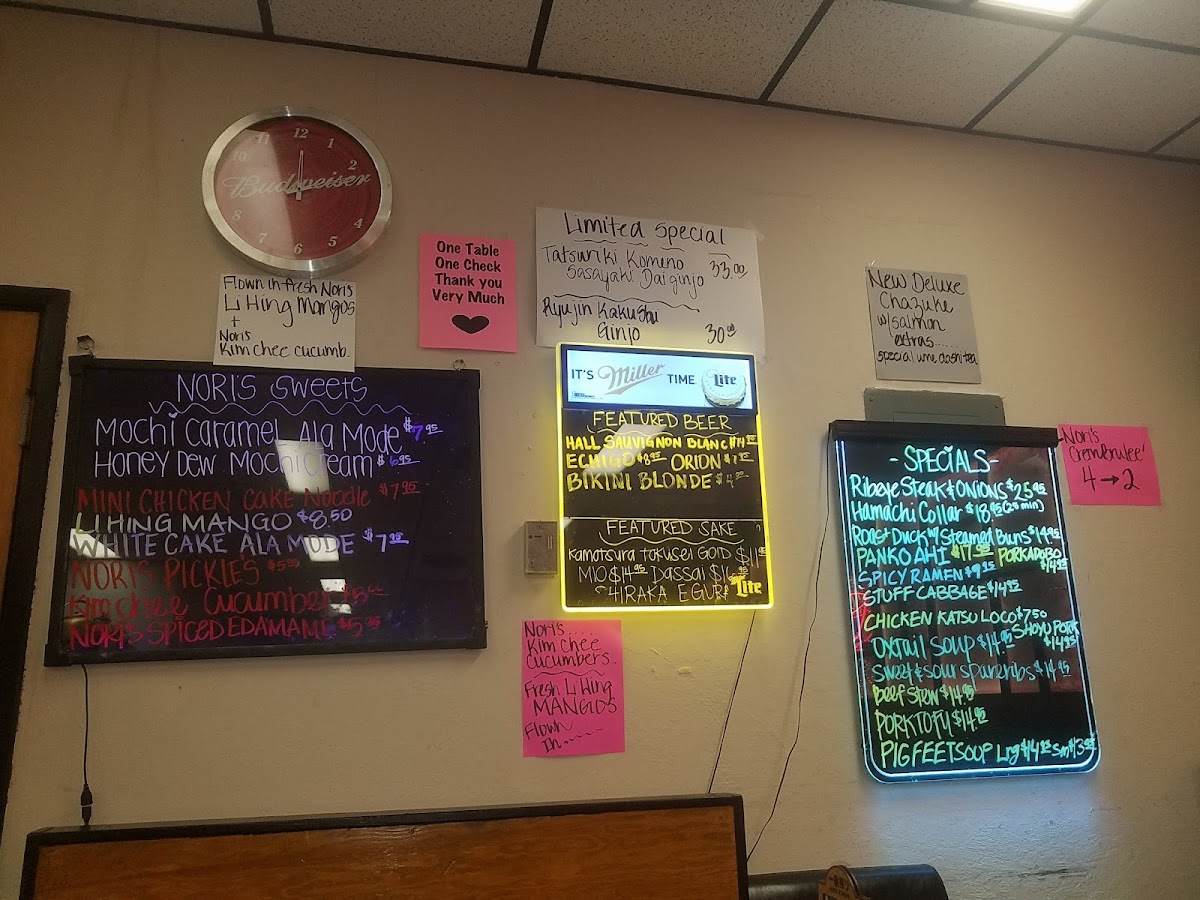 12
1
2
4
5
6
7
8
10
11
Budweiser
Flown in fresh Noris
Li Hing Mangos
+
Noris
Kim chee cucumb.
One Table
One Check
Thank you
Very Much
Limited Special
Tatsuriki Komeno 33.00
Sasayaki Daiginjo
Ryujin Kakushu
Ginjo 30.00
New Deluxe
Chazuke
w/salmon
extras.....
special ume dashi tea
NORI'S SWEETS
Mochi Caramel Ala Mode $7.95
Honey Dew Mochi Cream $6.95
MINI CHICKEN CAKE NOODLE $7.95
LI HING MANGO $8.50
WHITE CAKE ALA MODE $7.95
NORI'S PICKLES
Kim chee Cucumber
NORI'S SPICED EDAMAME $5.95
IT'S Miller TIME Lite
FEATURED BEER
HALL SAUVIGNON BLANC
ECHIGO $8.95 ORION
BIKINI BLONDE
FEATURED SAKE
Kamotsuru Tokusei GOLD
MIO $14.95 Dassai
SHIRAKA EGURA
Lite
Nori's....
Kim Chee
Cucumbers.
Fresh Li Hing
MANGOS
Flown
In......
-SPECIALS-
Ribeye Steak & ONIONS $25.95
Hamachi Collar $18.95 (25 min)
Roast Duck w/ Steamed Buns $14.95
PANKO AHI $17.95 PORK ADOBO $14.95
SPICY RAMEN $9.95
STUFF CABBAGE $14.95
CHICKEN KATSU LOCO $7.50
OXTAIL SOUP $14.95 SHOYU PORK $14.95
Sweet & sour spareribs $14.95
Beef Stew $14.95
PORK TOFU $14.95
PIG FEET SOUP Lrg $14.95 Sm $13.95
Nori's
Crembrulee'
4→2